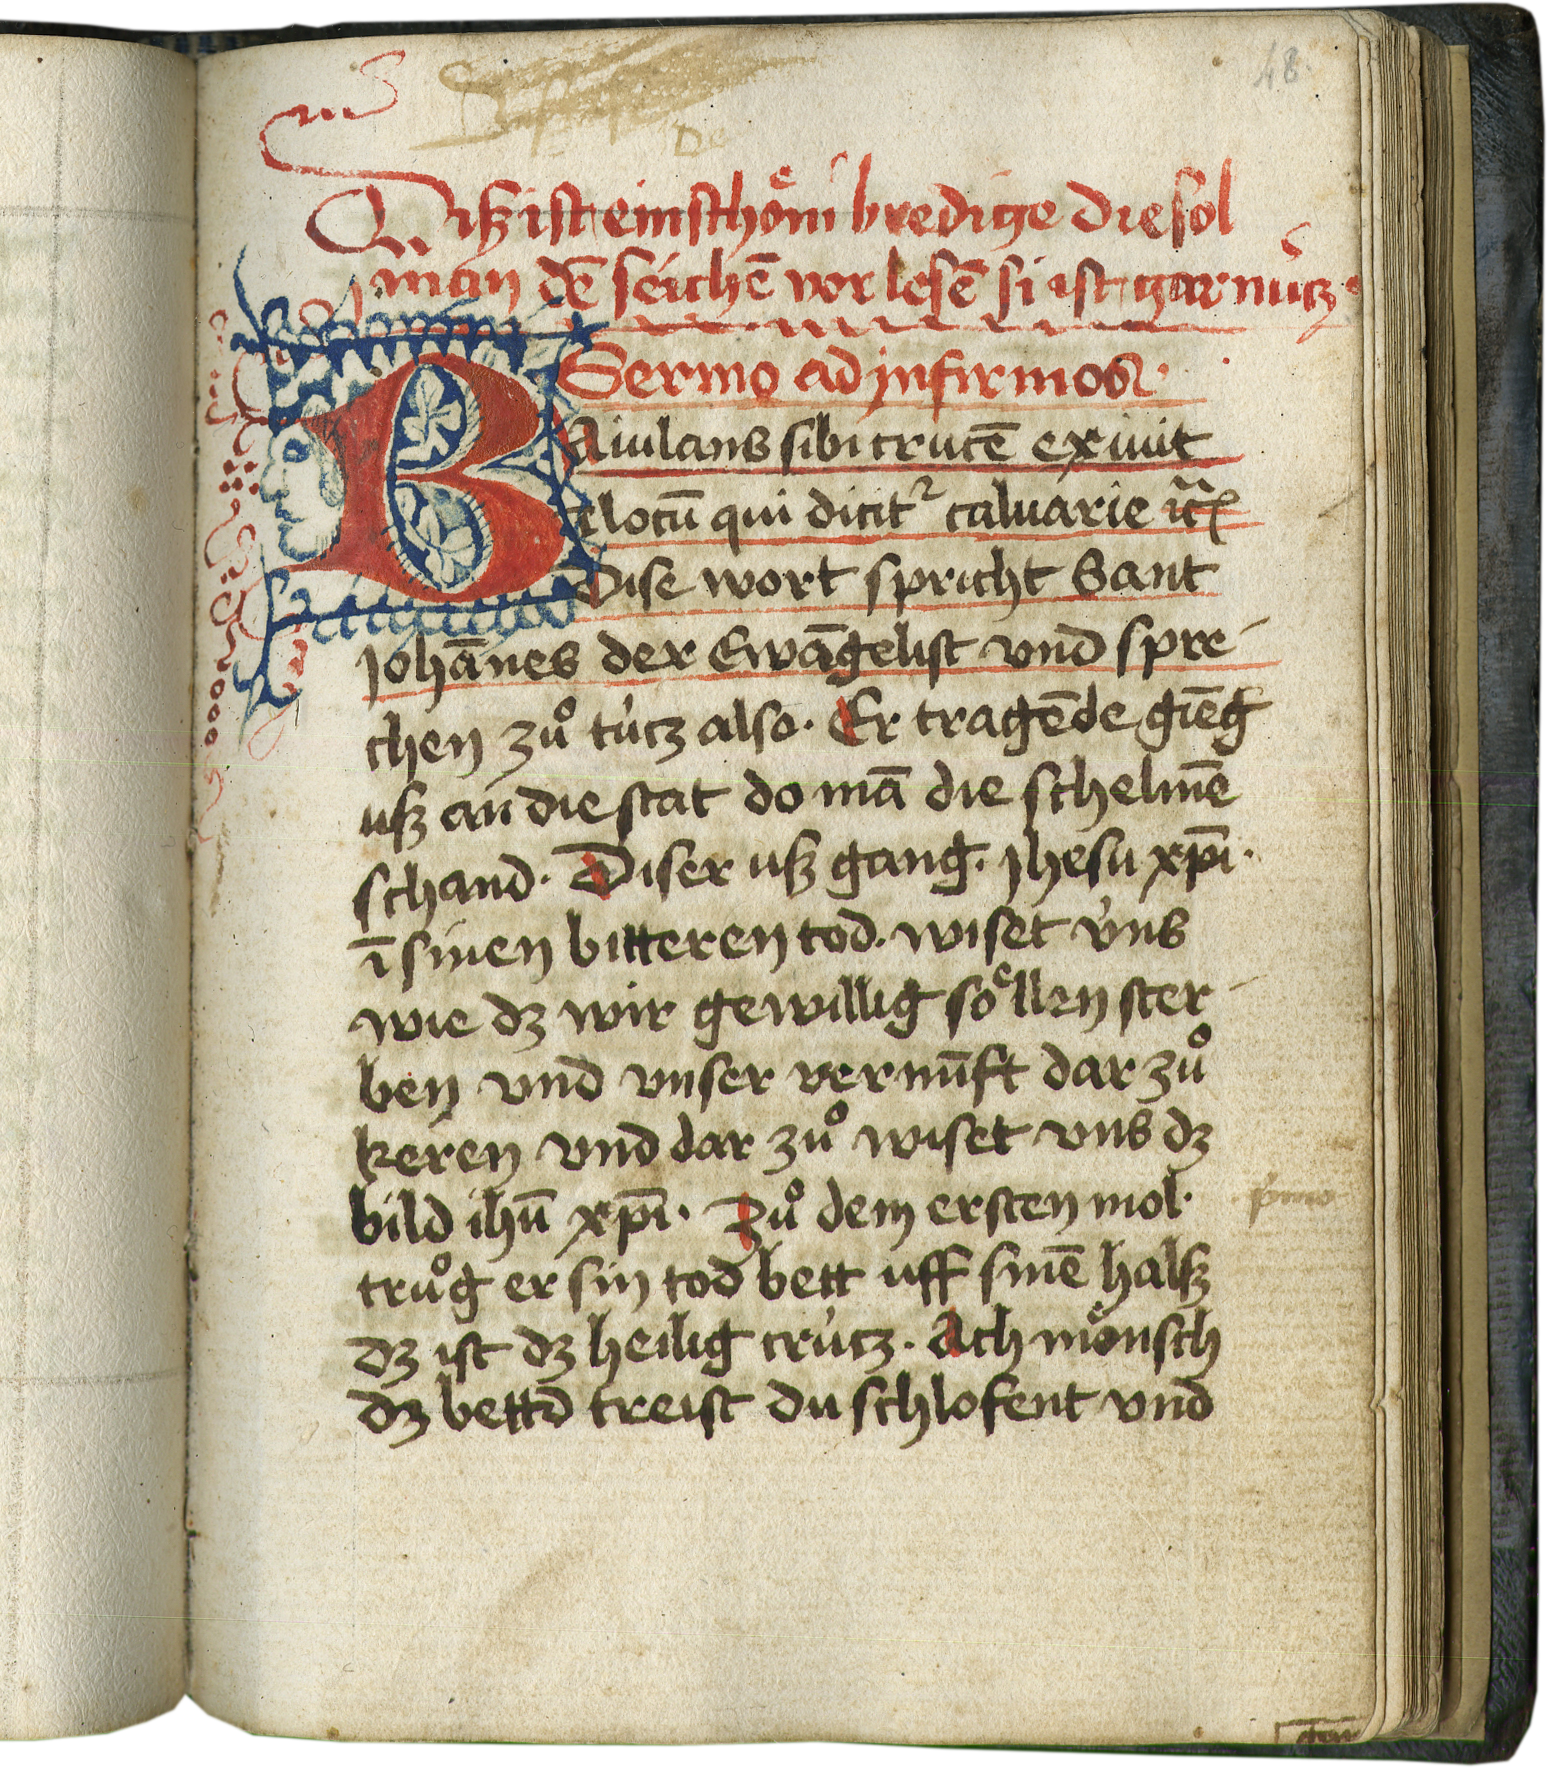 48.
Diſz iſt ein ſchoͤni bredige die ſol
man dē ſeichē vor leſē ſi iſt gar nùcz·
Sermo ad jnfirmos·
BAiulans ſibi crucē exiuit
elocū qui dicit᷑ caluarie
Diſe wort ſpricht Sant
Johānes der Ewāgeliſt vnd ſpre-
chen zuͦ tùcz alſo· Er tragēde giēg
uſz an die ſtat do mā die ſchelmē
ſchand· Diſer uſz gang· Jheſu xp̄i·
ī ſinen bitteren tod· wiſet v̇ns
wie dz wir gewillig ſoͤllen ſter-
ben vnd vnſer vernūft dar zuͦ
keren vnd dar zuͦ wiſet vns dz
bild ihū xp̄i· Zuͦ dem erſten mol·
pͥmo
truͦg er ſin tod bett uff ſinē halſz
dz iſt dz heilig crùcz· Ach moͤnſch
dz bettd treiſt du ſchlofent vnd